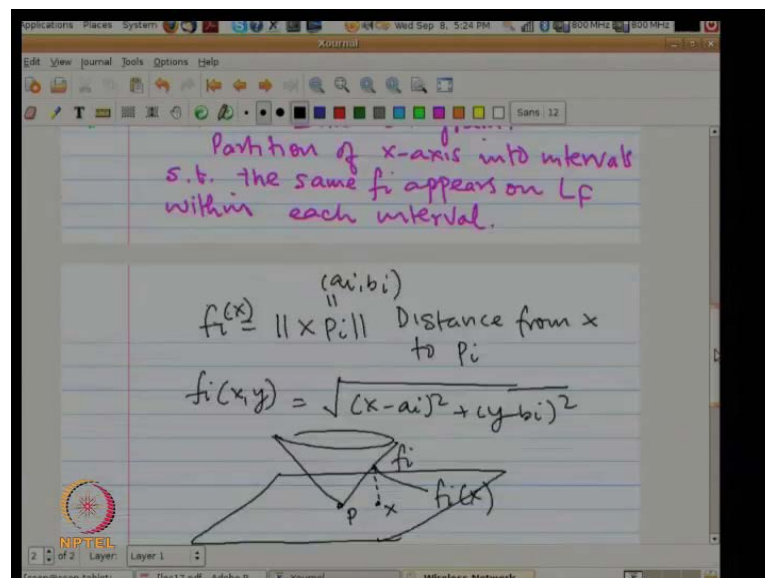 Applications Places System Wed Sep 8, 5:24 PM 800 MHz 800 MHz
Xournal
Edit View Journal Tools Options Help
Sans 12
Partition of x-axis into intervals
s.t. the same fi appears on LF
within each interval.
(ai,bi)
=
fi(x) = ||x pi|| Distance from x
to pi
fi(x,y) = √(x-ai)²+(y-bi)²
fi
P x fi(x)
NPTEL
2 of 2 Layer: Layer 1